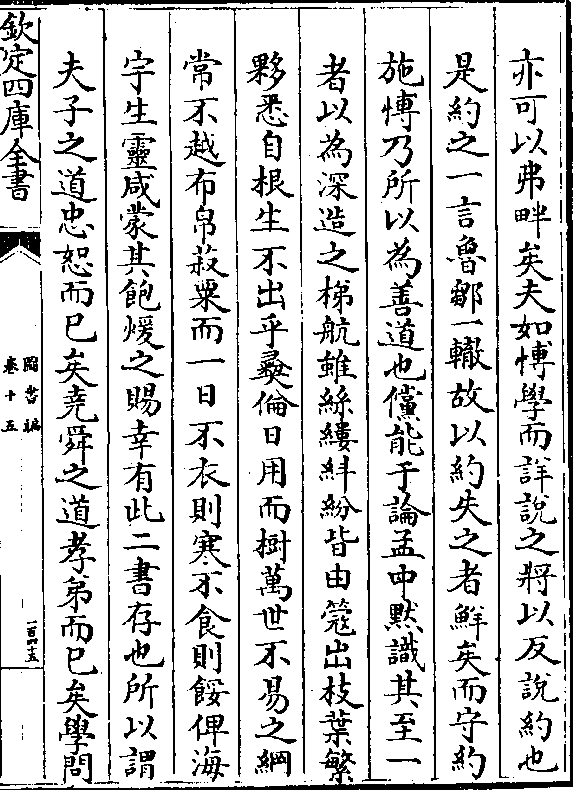 亦可以弗畔矣夫如博學而詳說之將以反說約也
是約之一言魯鄒一轍故以約失之者鮮矣而守約
施博乃所以為善道也儻能于論孟中默識其至一
者以為深造之梯航雖絲縷紏紛皆由篗出枝葉繁
夥悉自根生不出乎彞倫日用而樹萬世不易之綱
常不越布帛菽粟而一日不衣則寒不食則餒俾海
宇生靈咸蒙其飽煖之賜幸有此二書存也所以謂
夫子之道忠恕而已矣堯舜之道孝弟而已矣學問
欽定四庫全書
圖書編
卷十五